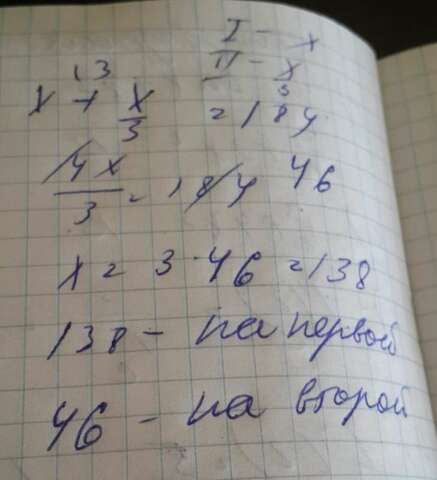 I - x
II - x/3
x + x/3 = 184
4x/3 = 184 46
x = 3 · 46 = 138
138 - на первой
46 - на второй